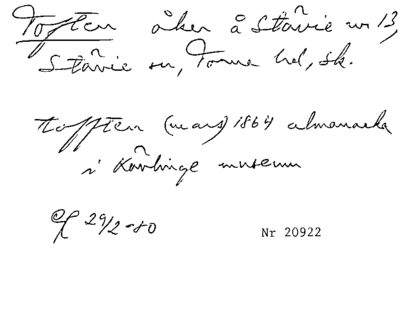 Toften åker å Stävie nr 13,
Stävie sn, Torna hd, sk.
tofften (mars) 1864 almanacka
i Kävlinge museum
29/2-80
Nr 20922